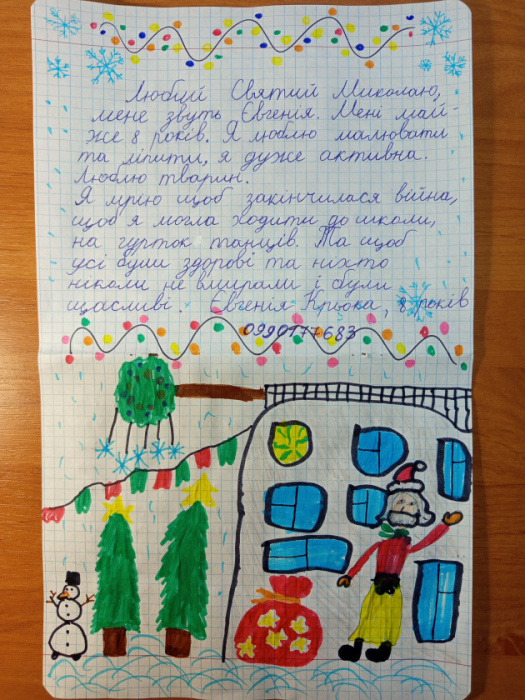 Любий Святий Миколаю,
мене звуть Євгенія. Мені май-
же 8 років. Я люблю малювати
та ліпити, я дуже активна.
Люблю тварин.
Я мрію щоб закінчилася війна,
щоб я могла ходити до школи,
на гурток танців. Та щоб
усі були здорові та ніхто
ніколи не вмирали і були
щасливі. Євгенія Крьока, 8 років
0990177683